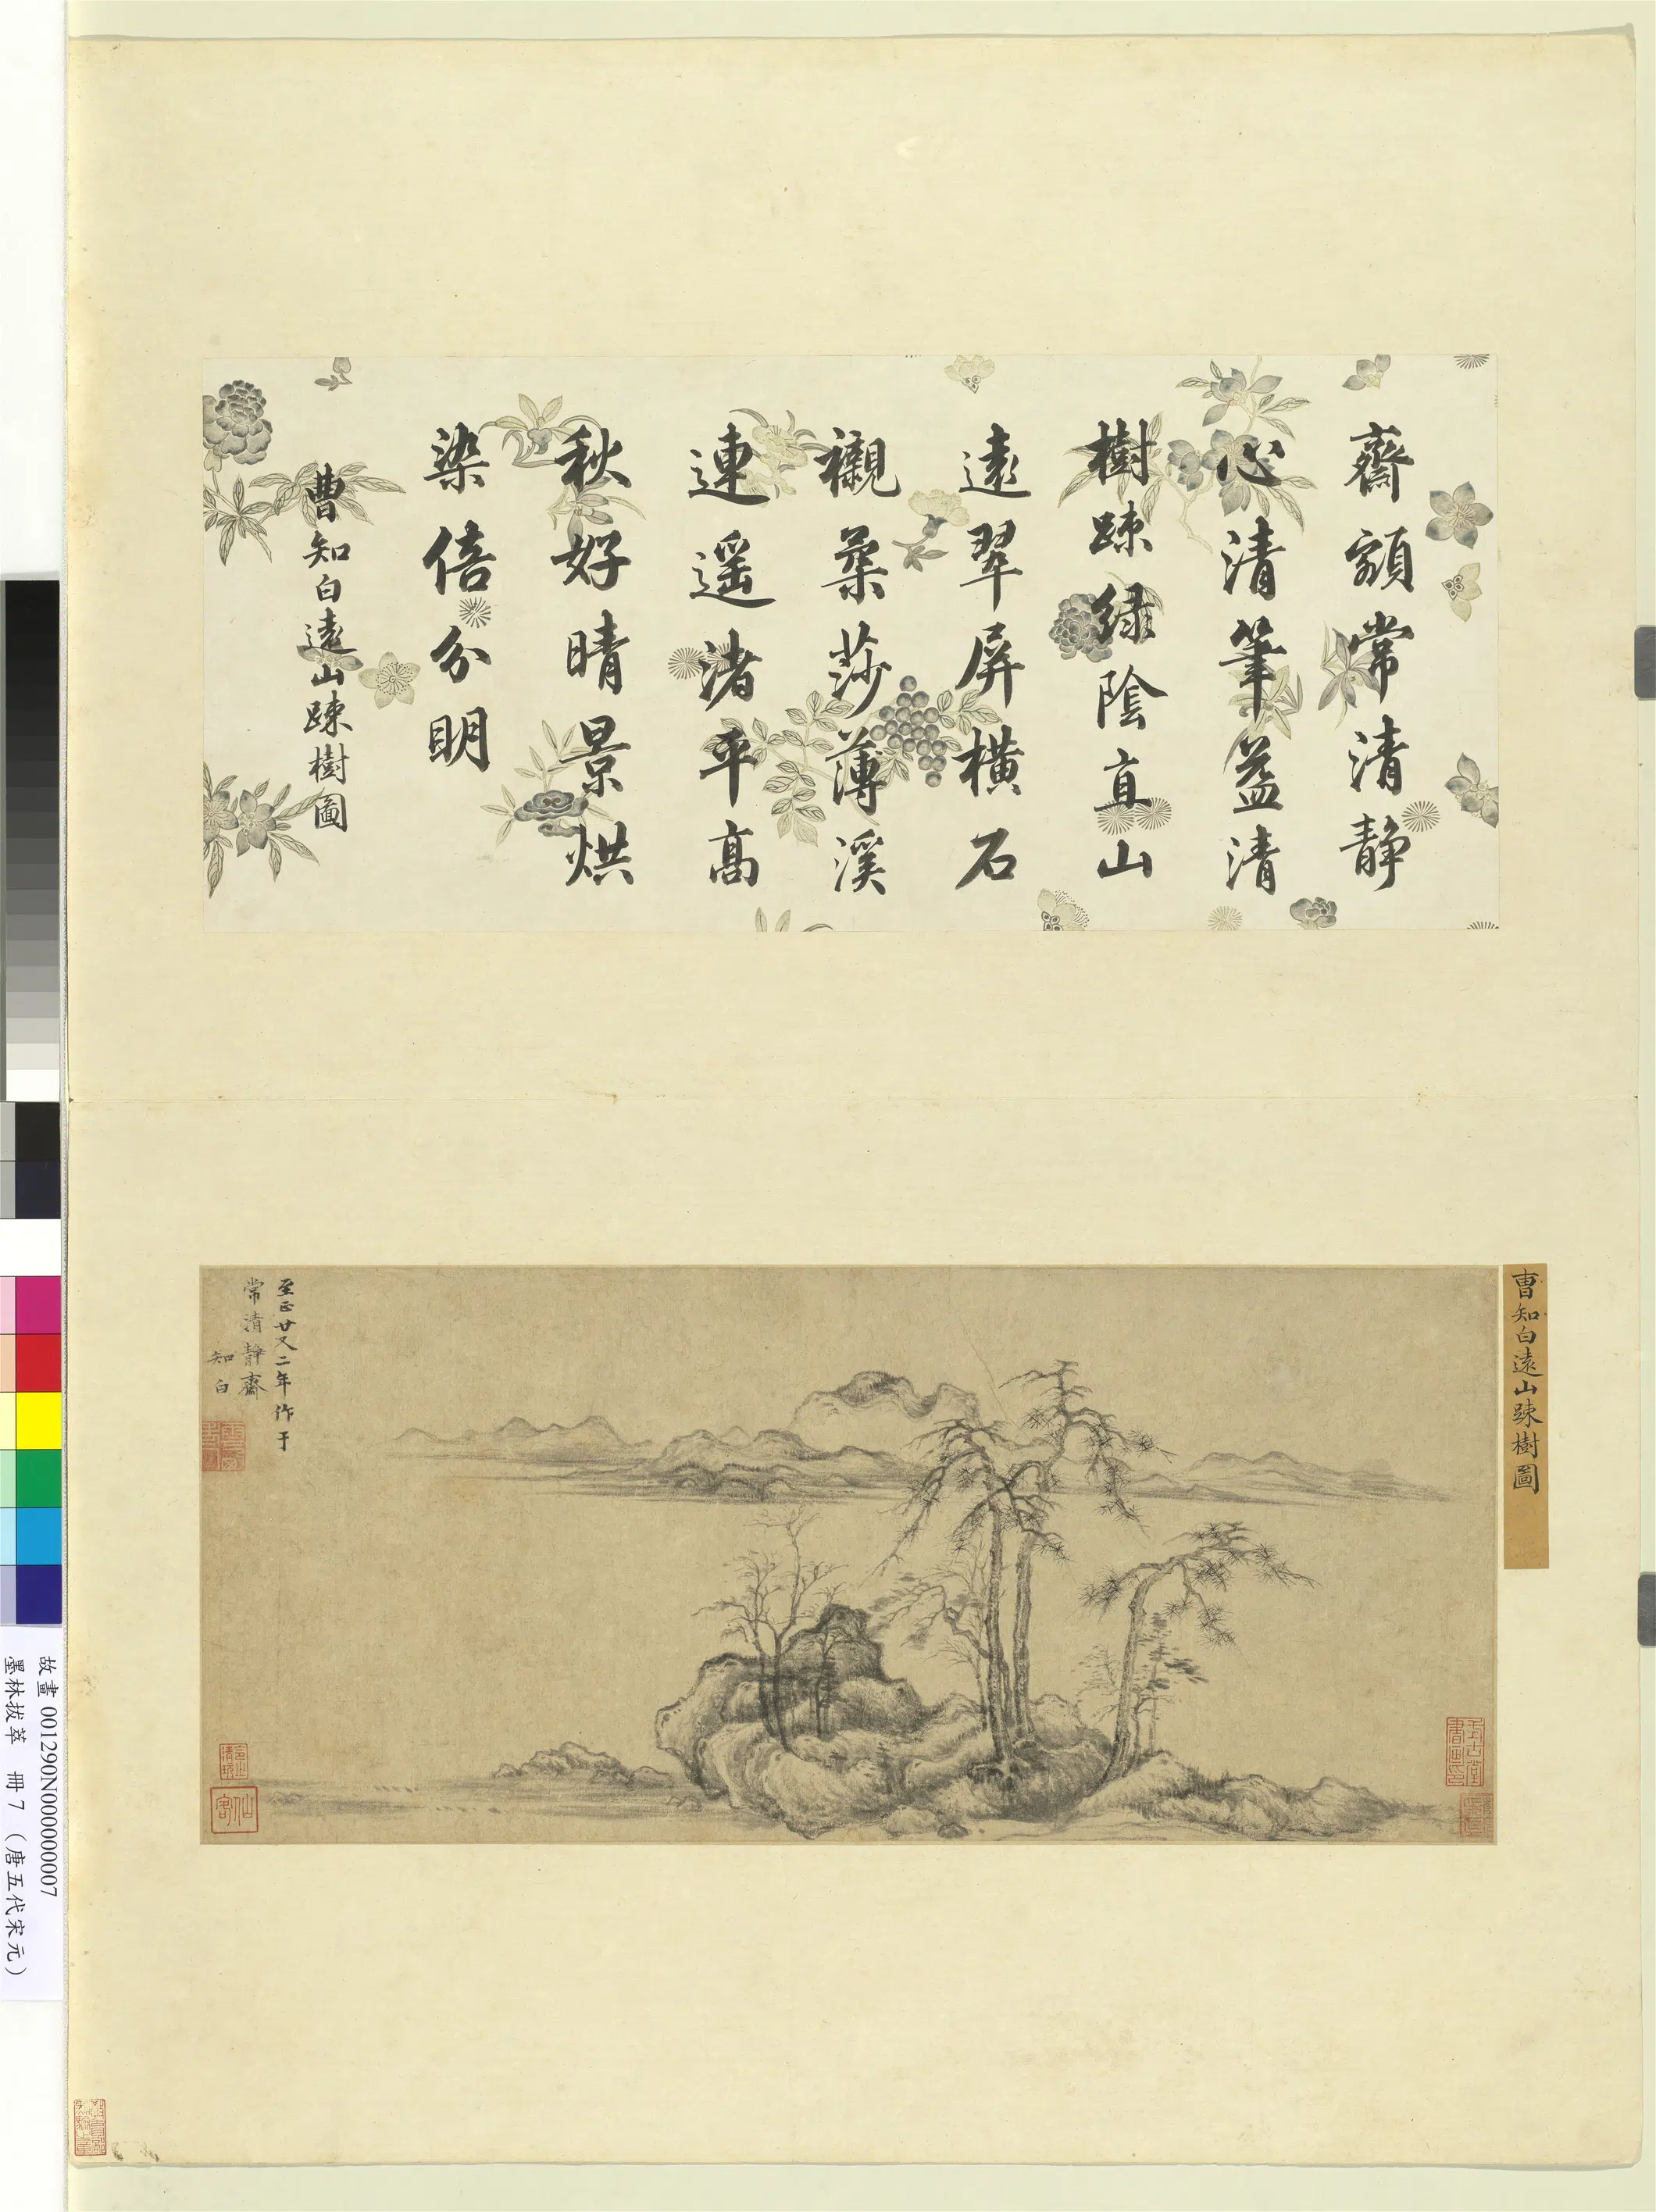 齋額常清静
心清筆益清
樹踈緑陰直山
遠翠屏橫石
襯葉莎薄溪
連遥渚平高
秋好晴景烘
染倍分明
曹知白遠山踈樹圖
曹知白遠山踈樹圖
至正廿又二年作于
常清靜齋
知白
仙客
故畫 001290N000000007
墨林拔萃 冊 7 （唐五代宋元）